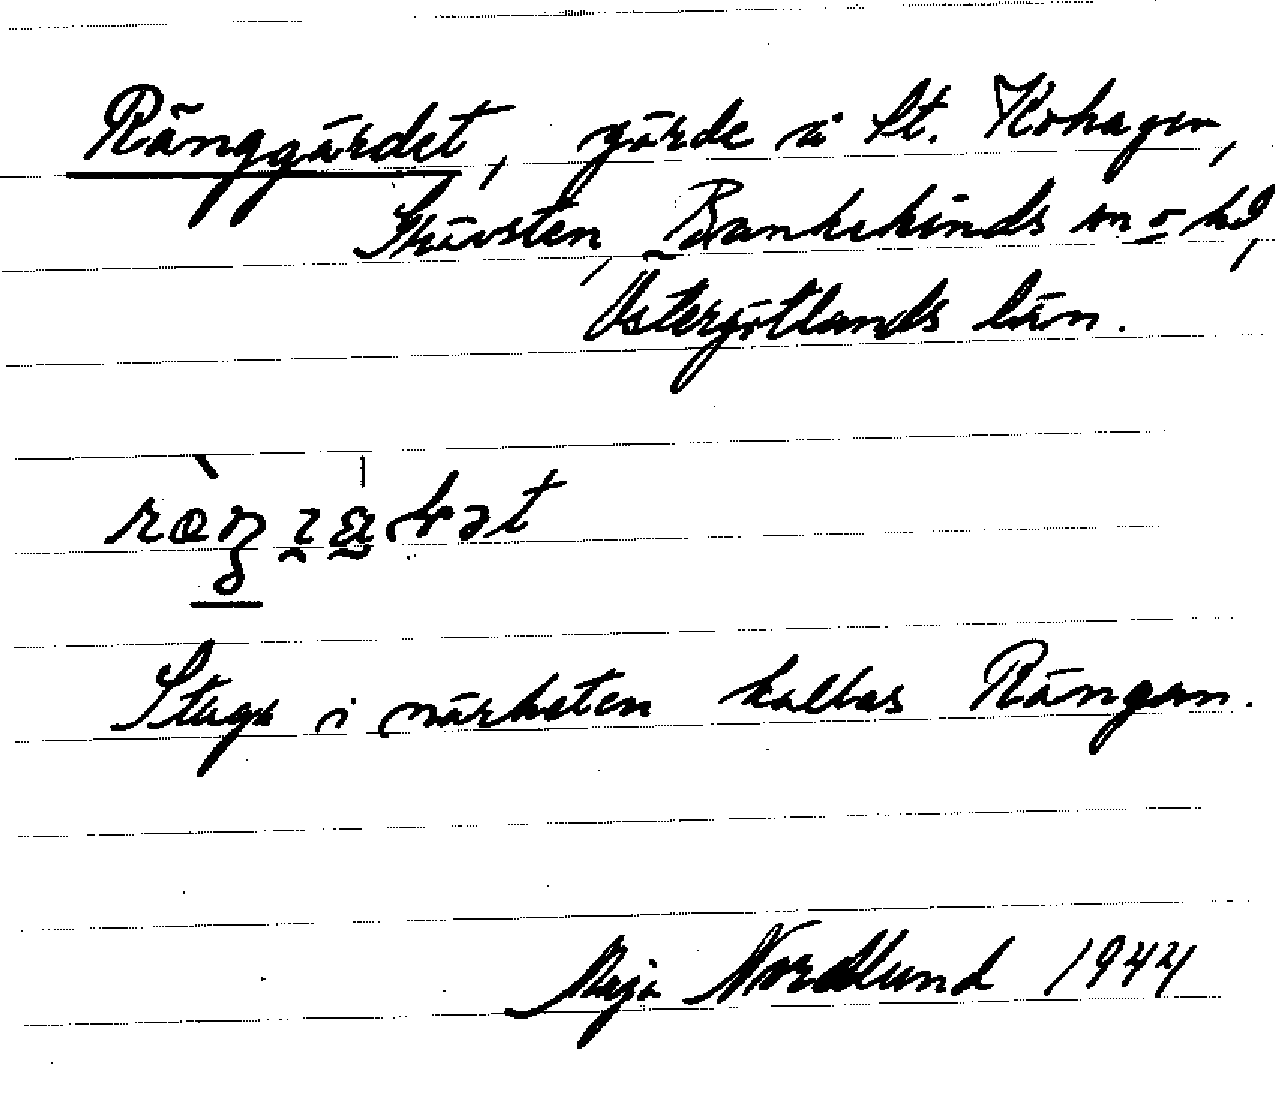 Ränggärdet, gärde å St. Kohagen,
Skävsten, Bankekinds sn o hd,
Östergötlands län.
Stuga i närheten kallas Rängen.
Maja Nordlund 1944